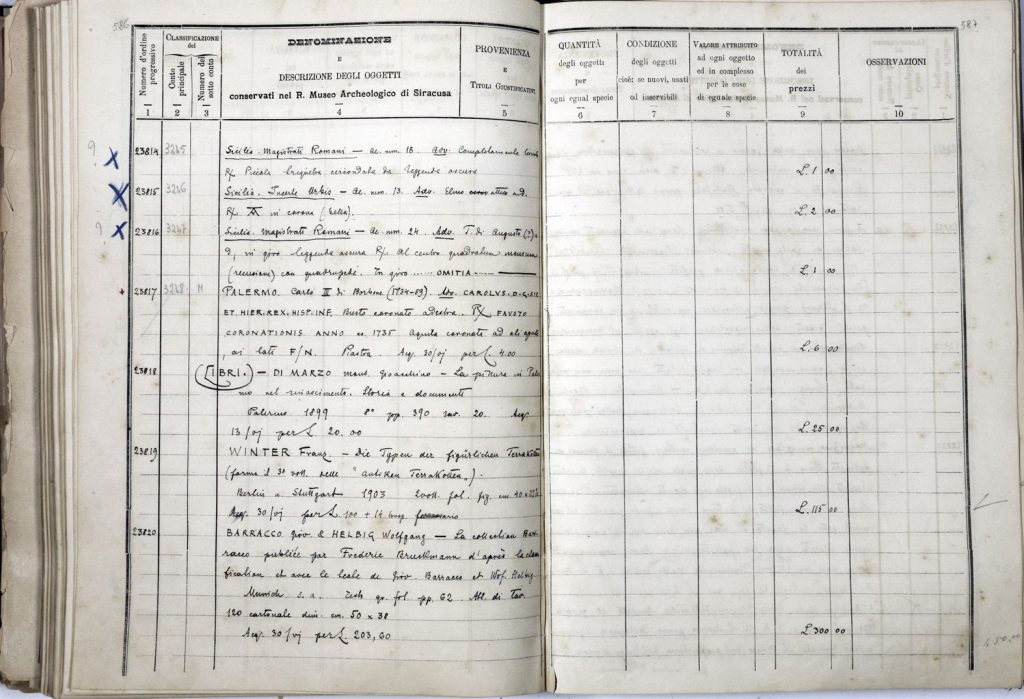 586
587
Numero d'ordine progressivo
CLASSIFICAZIONE del
Conto principale
Numero del sotto conto
DENOMINAZIONE
E
DESCRIZIONE DEGLI OGGETTI
conservati nel R. Museo Archeologico di Siracusa
PROVENIENZA
E
TITOLI GIUSTIFICATIVI
QUANTITÀ
degli oggetti
per
ogni egual specie
CONDIZIONE
degli oggetti
cioè: se nuovi, usati
od inservibili
VALORE ATTRIBUITO
ad ogni oggetto
ed in complesso
per le cose
di eguale specie
TOTALITÀ
dei
prezzi
OSSERVAZIONI
1 2 3 4 5 6 7 8 9 10
9 X 23814 3245 Sicilia. Magistrati Romani — Ae. num. 18. Adv. Completamente
R/. Piccola cerchiata da leggenda oscura L. 1 00
X 23815 3246 Sicilia. Incerte Urbis — Ae. num. 13. Adv. Elmo attico a d.
R/. in corona (bella). L. 2 00
9 X 23816 3247 Sicilia. Magistrati Romani — Ae. num. 24. Adv. T. di Augusto (?) a
d, in giro leggenda oscura R/. Al centro quadratum
(recensioni) con In giro ...... OMITIA ......
L. 1 00
23817 3248 M PALERMO. Carlo III di Borbone (1734-59). Adv. CAROLVS. D. G. SIC
ET HIER. REX. HISP. INF. Busto coronato a destra. R/. FAVSTO
CORONATIONIS ANNO es. 1735 Aquila coronata ad ali aperte,
ai lati F/N. Piastra. Acq. 30/VI per L. 4.00 L. 6 00
23818 LIBRI. — DI MARZO mons. Gioacchino — La pittura in Paler
mo nel rinascimento. Storia e documenti
Palermo 1899 8° pp. 390 tav. 20. Acq.
13/VI per L. 20.00 L. 25 00
23819 WINTER Franz. — Die Typen der figürlichen Terrakotten
(forma il 3° voll. delle "antiken Terrakotten").
Berlin u. Stuttgart 1903 2 voll. fol. fig. cm. 40 x
Acq. 30/VI per L. 100 + 14 L. 115 00
23820 BARRACCO Giov. & HELBIG Wolfgang — La collection Bar
racco publiée par Frederic Bruckmann d'après la classi
fication et avec le texte de Giov. Barracco et Wolf. Helbig
Munich s. a. Testo gr. fol. pp. 62. Alb. di tav.
120 cartonate dim. cm. 50 x 38
Acq. 30/VI per L. 203,60 L. 300 00